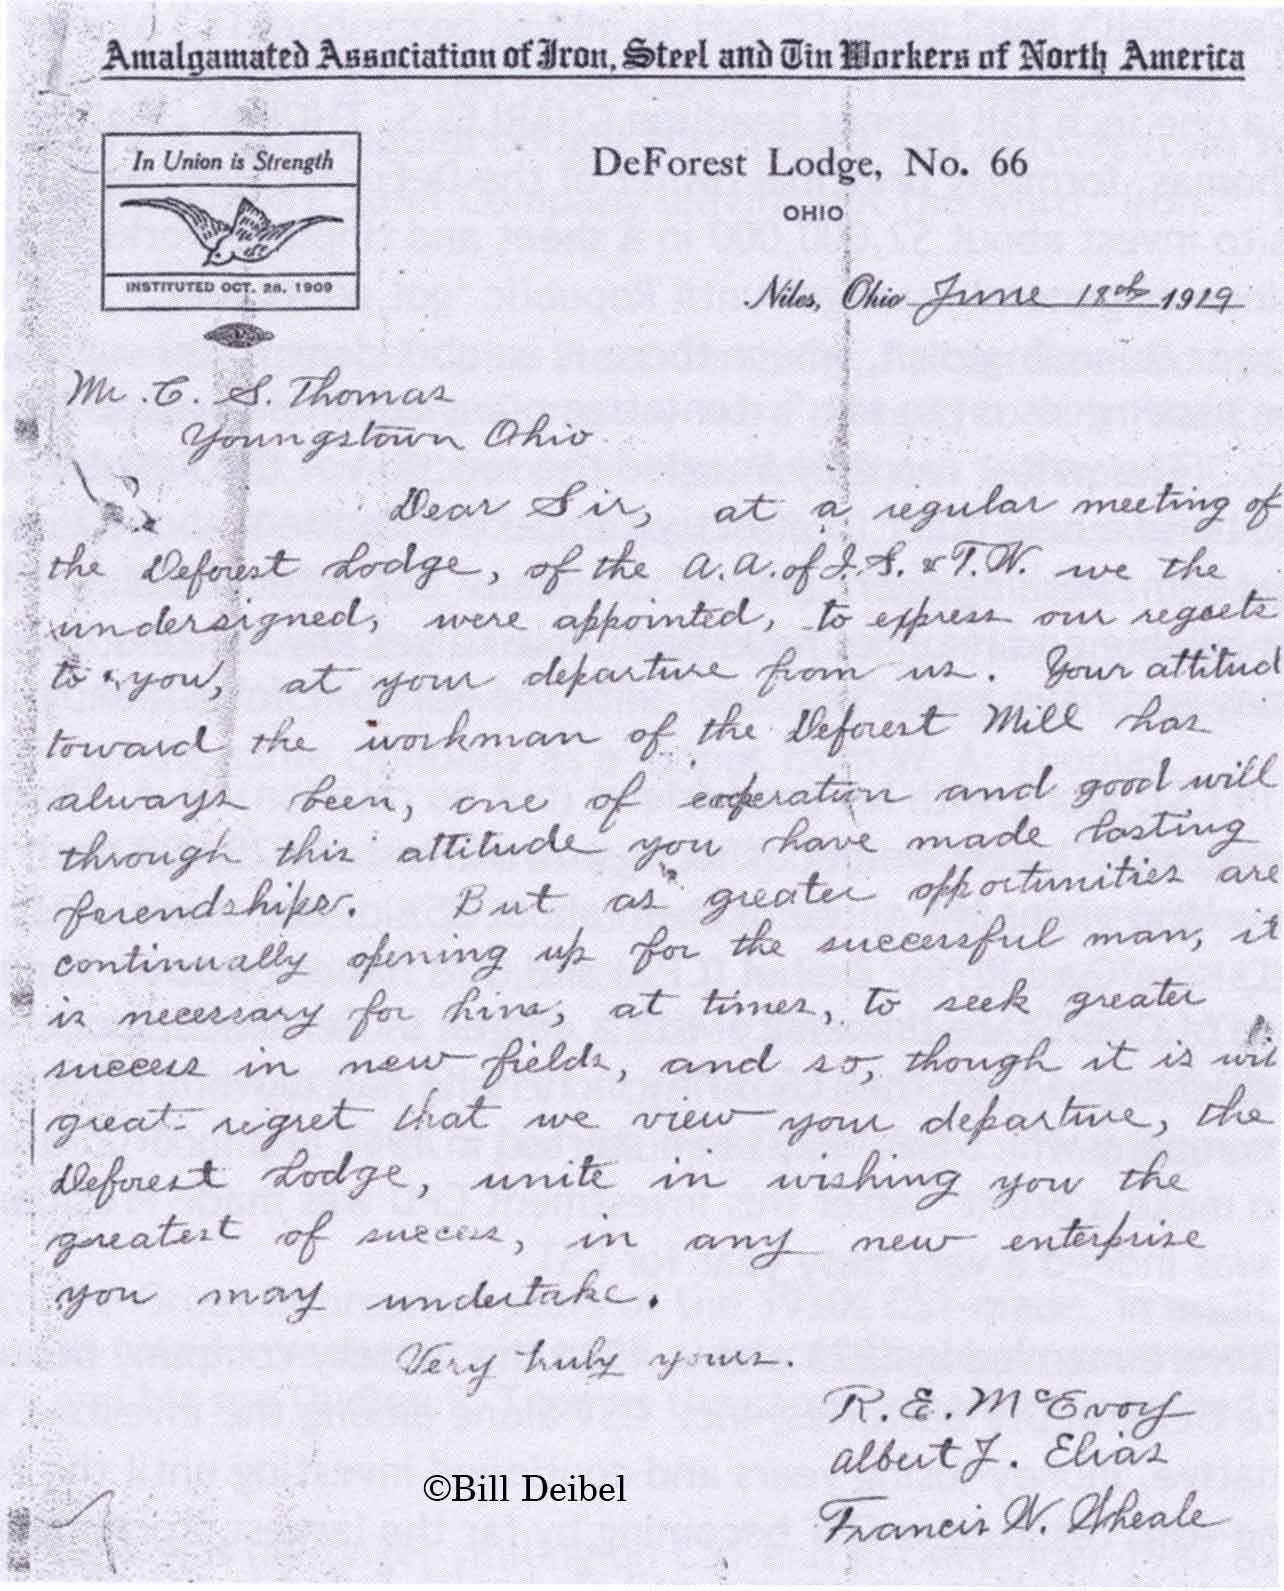 Amalgamated Association of Iron, Steel and Tin Workers of North America
In Union is Strength
INSTITUTED OCT. 28, 1909
DeForest Lodge, No. 66
OHIO
Niles, Ohio June 18th 1919
Mr. C. S. Thomas
Youngstown Ohio
Dear Sir, at a regular meeting of
the Deforest Lodge, of the A.A. of I.S. & T.W. we the
undersigned, were appointed, to express our regrets
to you, at your departure from us. Your attitud
toward the workman of the Deforest Mill has
always been, one of cooperation and good will
through this attitude you have made lasting
friendships. But as greater opportunities are
continually opening up for the successful man, it
is necessary for him, at times, to seek greater
success in new fields, and so, though it is wit
great regret that we view your departure, the
Deforest Lodge, unite in wishing you the
greatest of success, in any new enterprise
you may undertake.
Very truly yours.
R. E. McEvoy
Albert J. Elias
Francis W. Wheale
©Bill Deibel